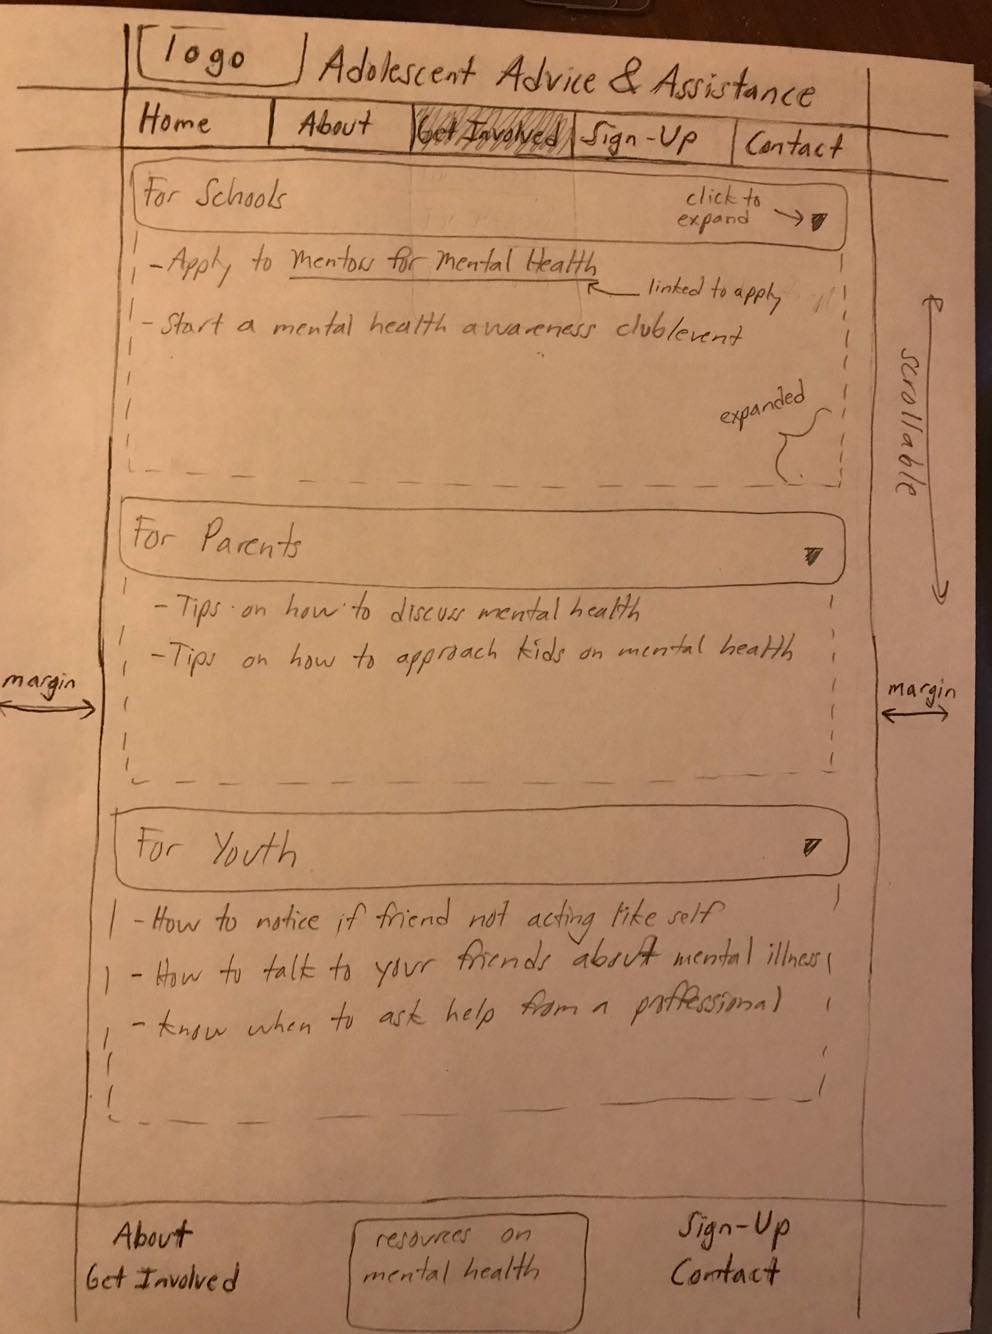 logo
Adolescent Advice & Assistance
Home
About
Get Involved
Sign-Up
Contact
For Schools
click to
expand
- Apply to Mentors for Mental Health
linked to apply
- Start a mental health awareness club/event
expanded
scrollable
For Parents
- Tips on how to discuss mental health
- Tips on how to approach kids on mental health
margin
margin
For Youth
- How to notice if friend not acting like self
- How to talk to your friends about mental illness
- Know when to ask help from a proffessional
About
Get Involved
resources on
mental health
Sign-Up
Contact